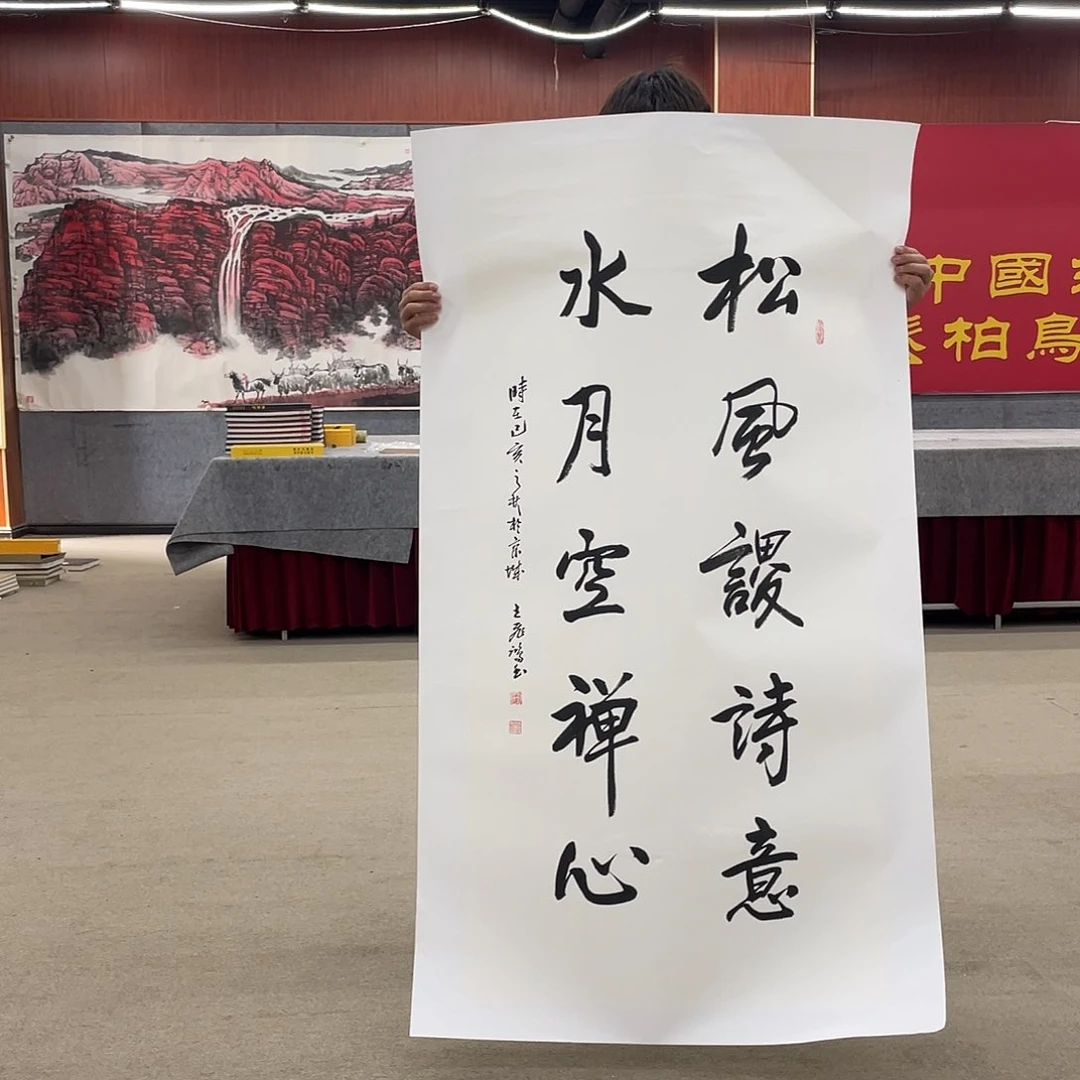 松風謖詩意
水月空禅心
時在己亥之秋於京城
中國
柏鳥